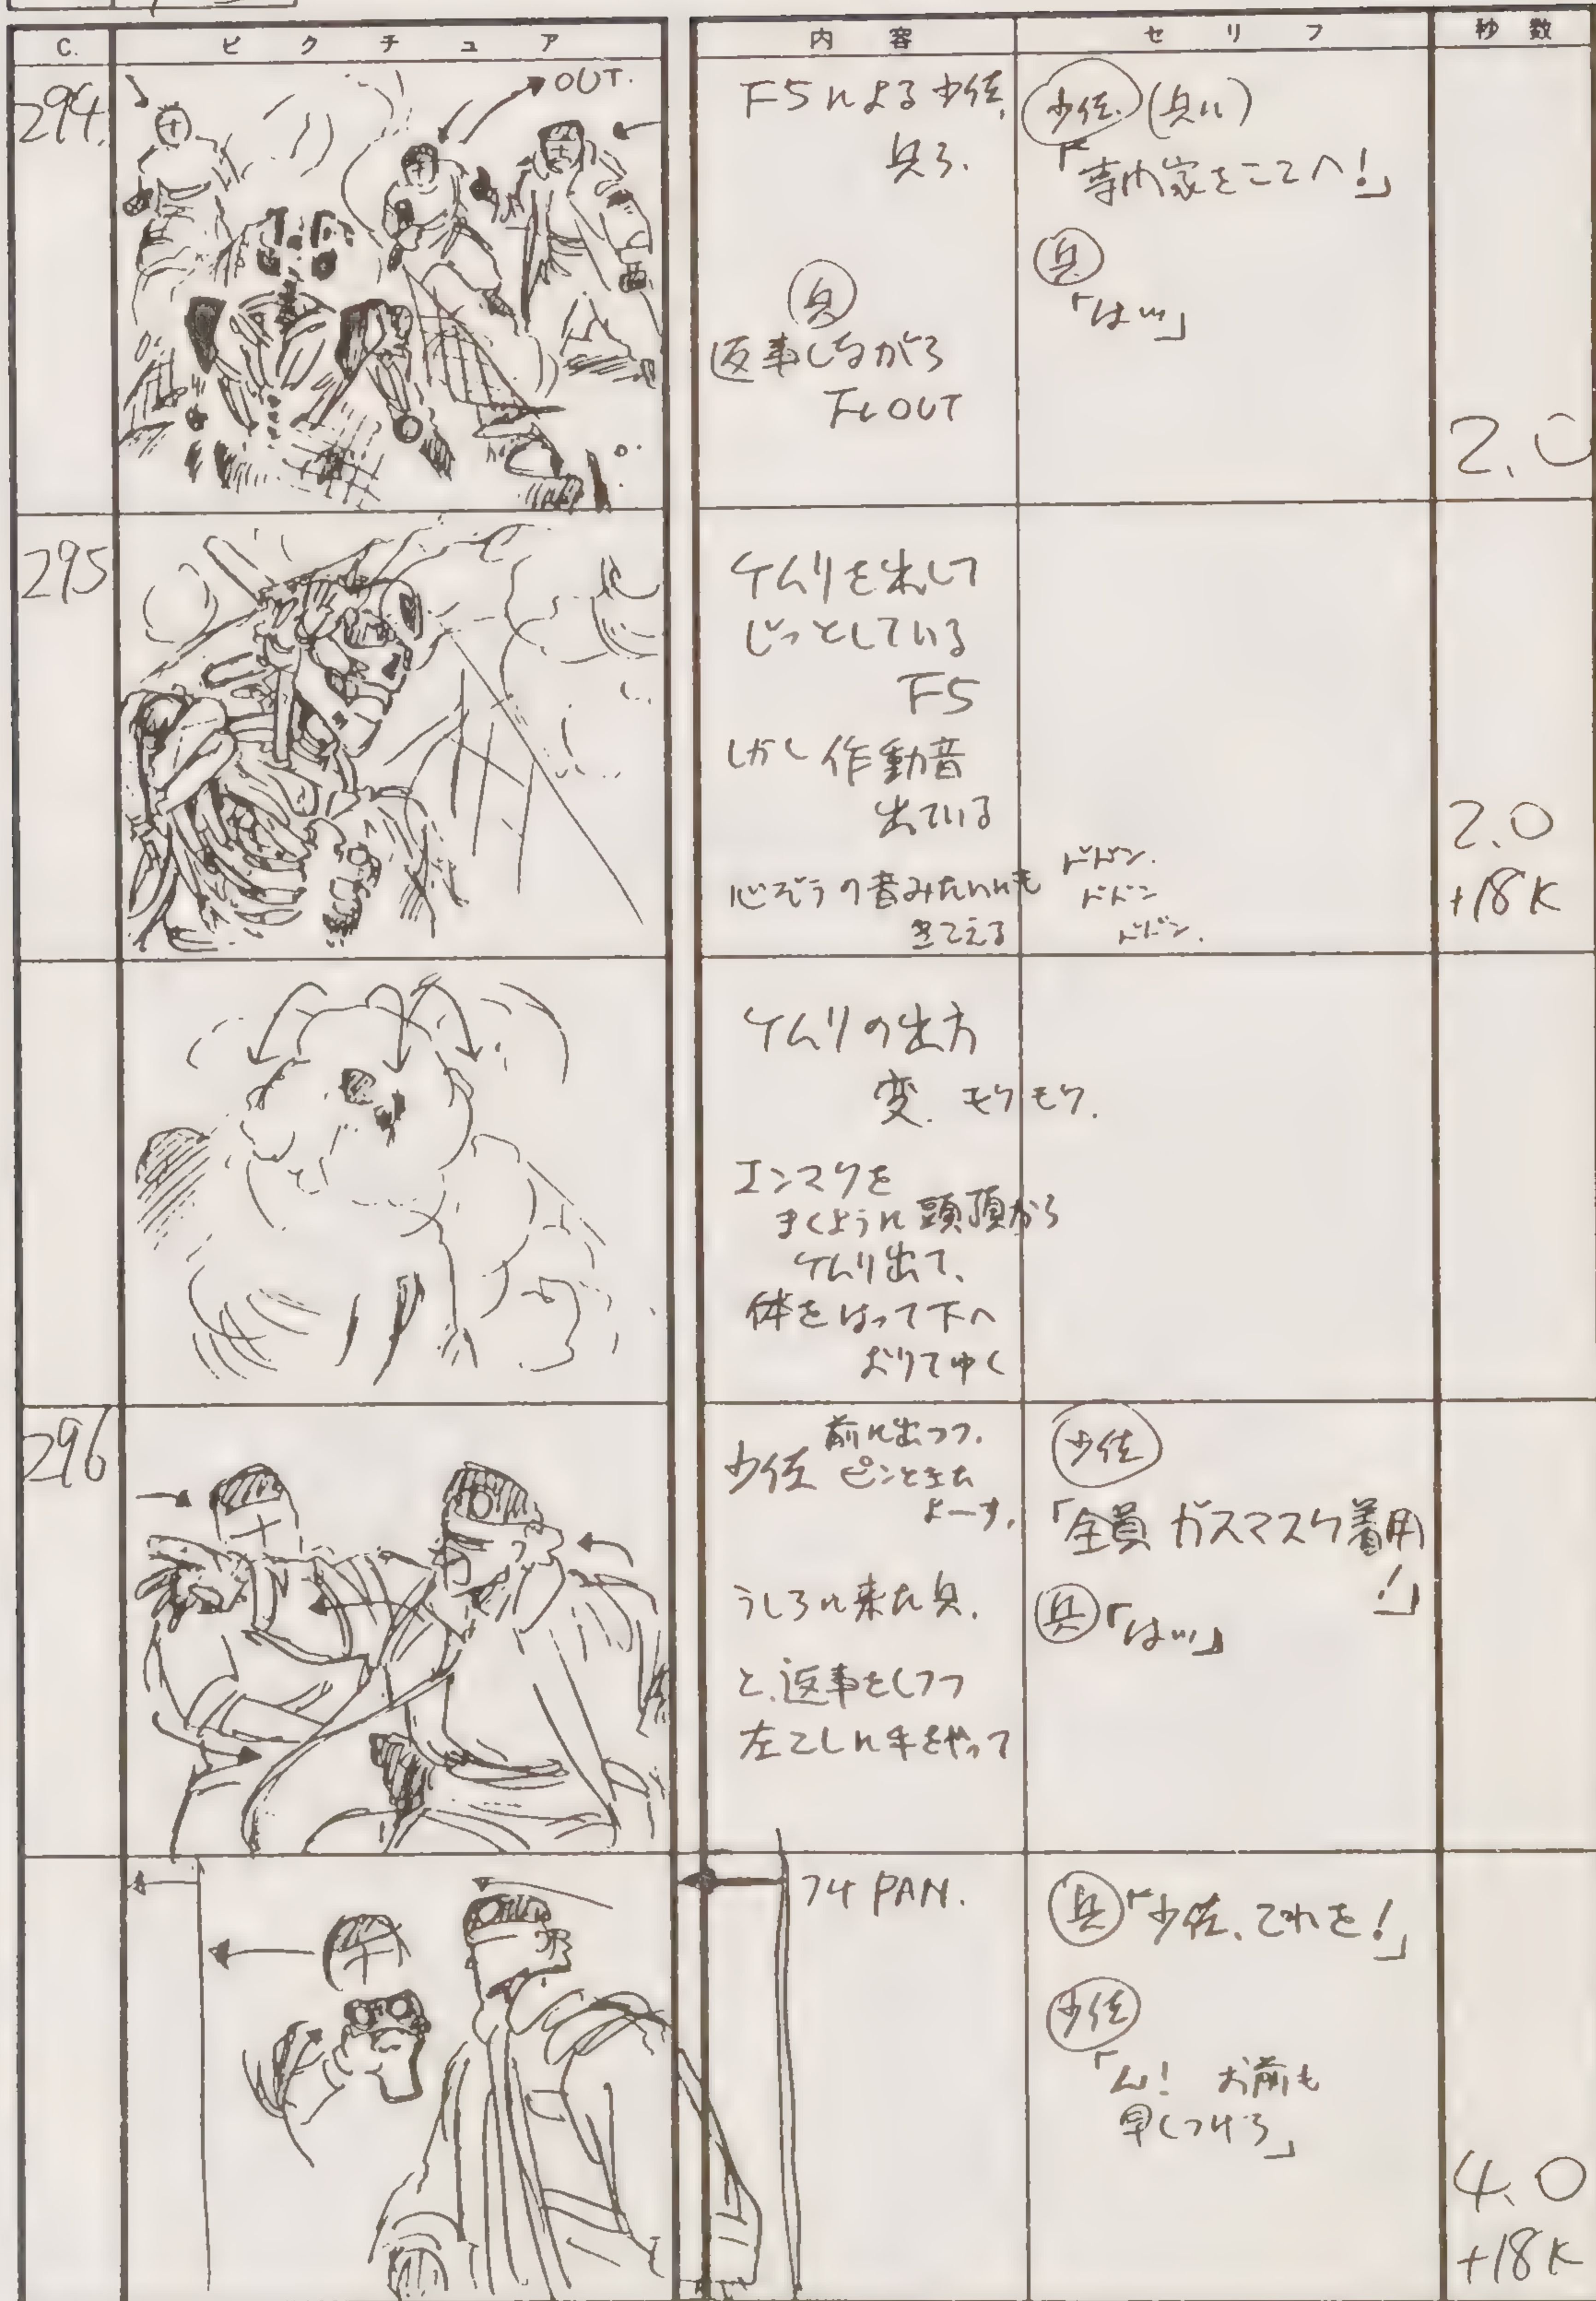 C. ピクチュア 内容 セリフ 秒数
294.
OUT.
F5による少佐,
兵ら.
兵
返事しながら
FrOUT
少佐 (兵に)
「専門家をここへ!」
兵
「はッ」
2.0
295
ケムリを出して
じっとしている
F5
しかし作動音
出ている
心ぞうの音みたいにも
きこえる
ドドン.
ドドン
ドドン.
2.0
+18K
ケムリの出方
変. モクモク.
エンマクを
まくように頭頂から
ケムリ出て、
体をはって下へ
おりてゆく
296
前に出つつ.
少佐 ピンときた
よーす.
うしろに来た兵.
と、返事をしつつ
左こしに手をやって
少佐
「全員 ガスマスク着用
!」
兵「はッ」
74 PAN.
兵「少佐、これを!」
少佐
「ん! お前も
早くつけろ」
4.0
+18K